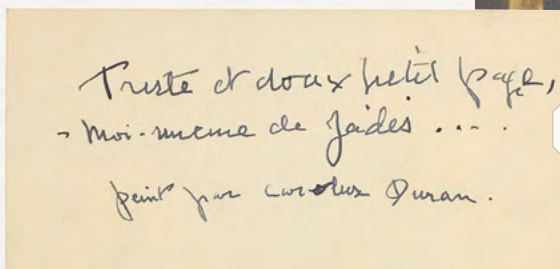 Triste et doux petit page,
- moi-meme de Jadis ....
peint par Carolus Duran.